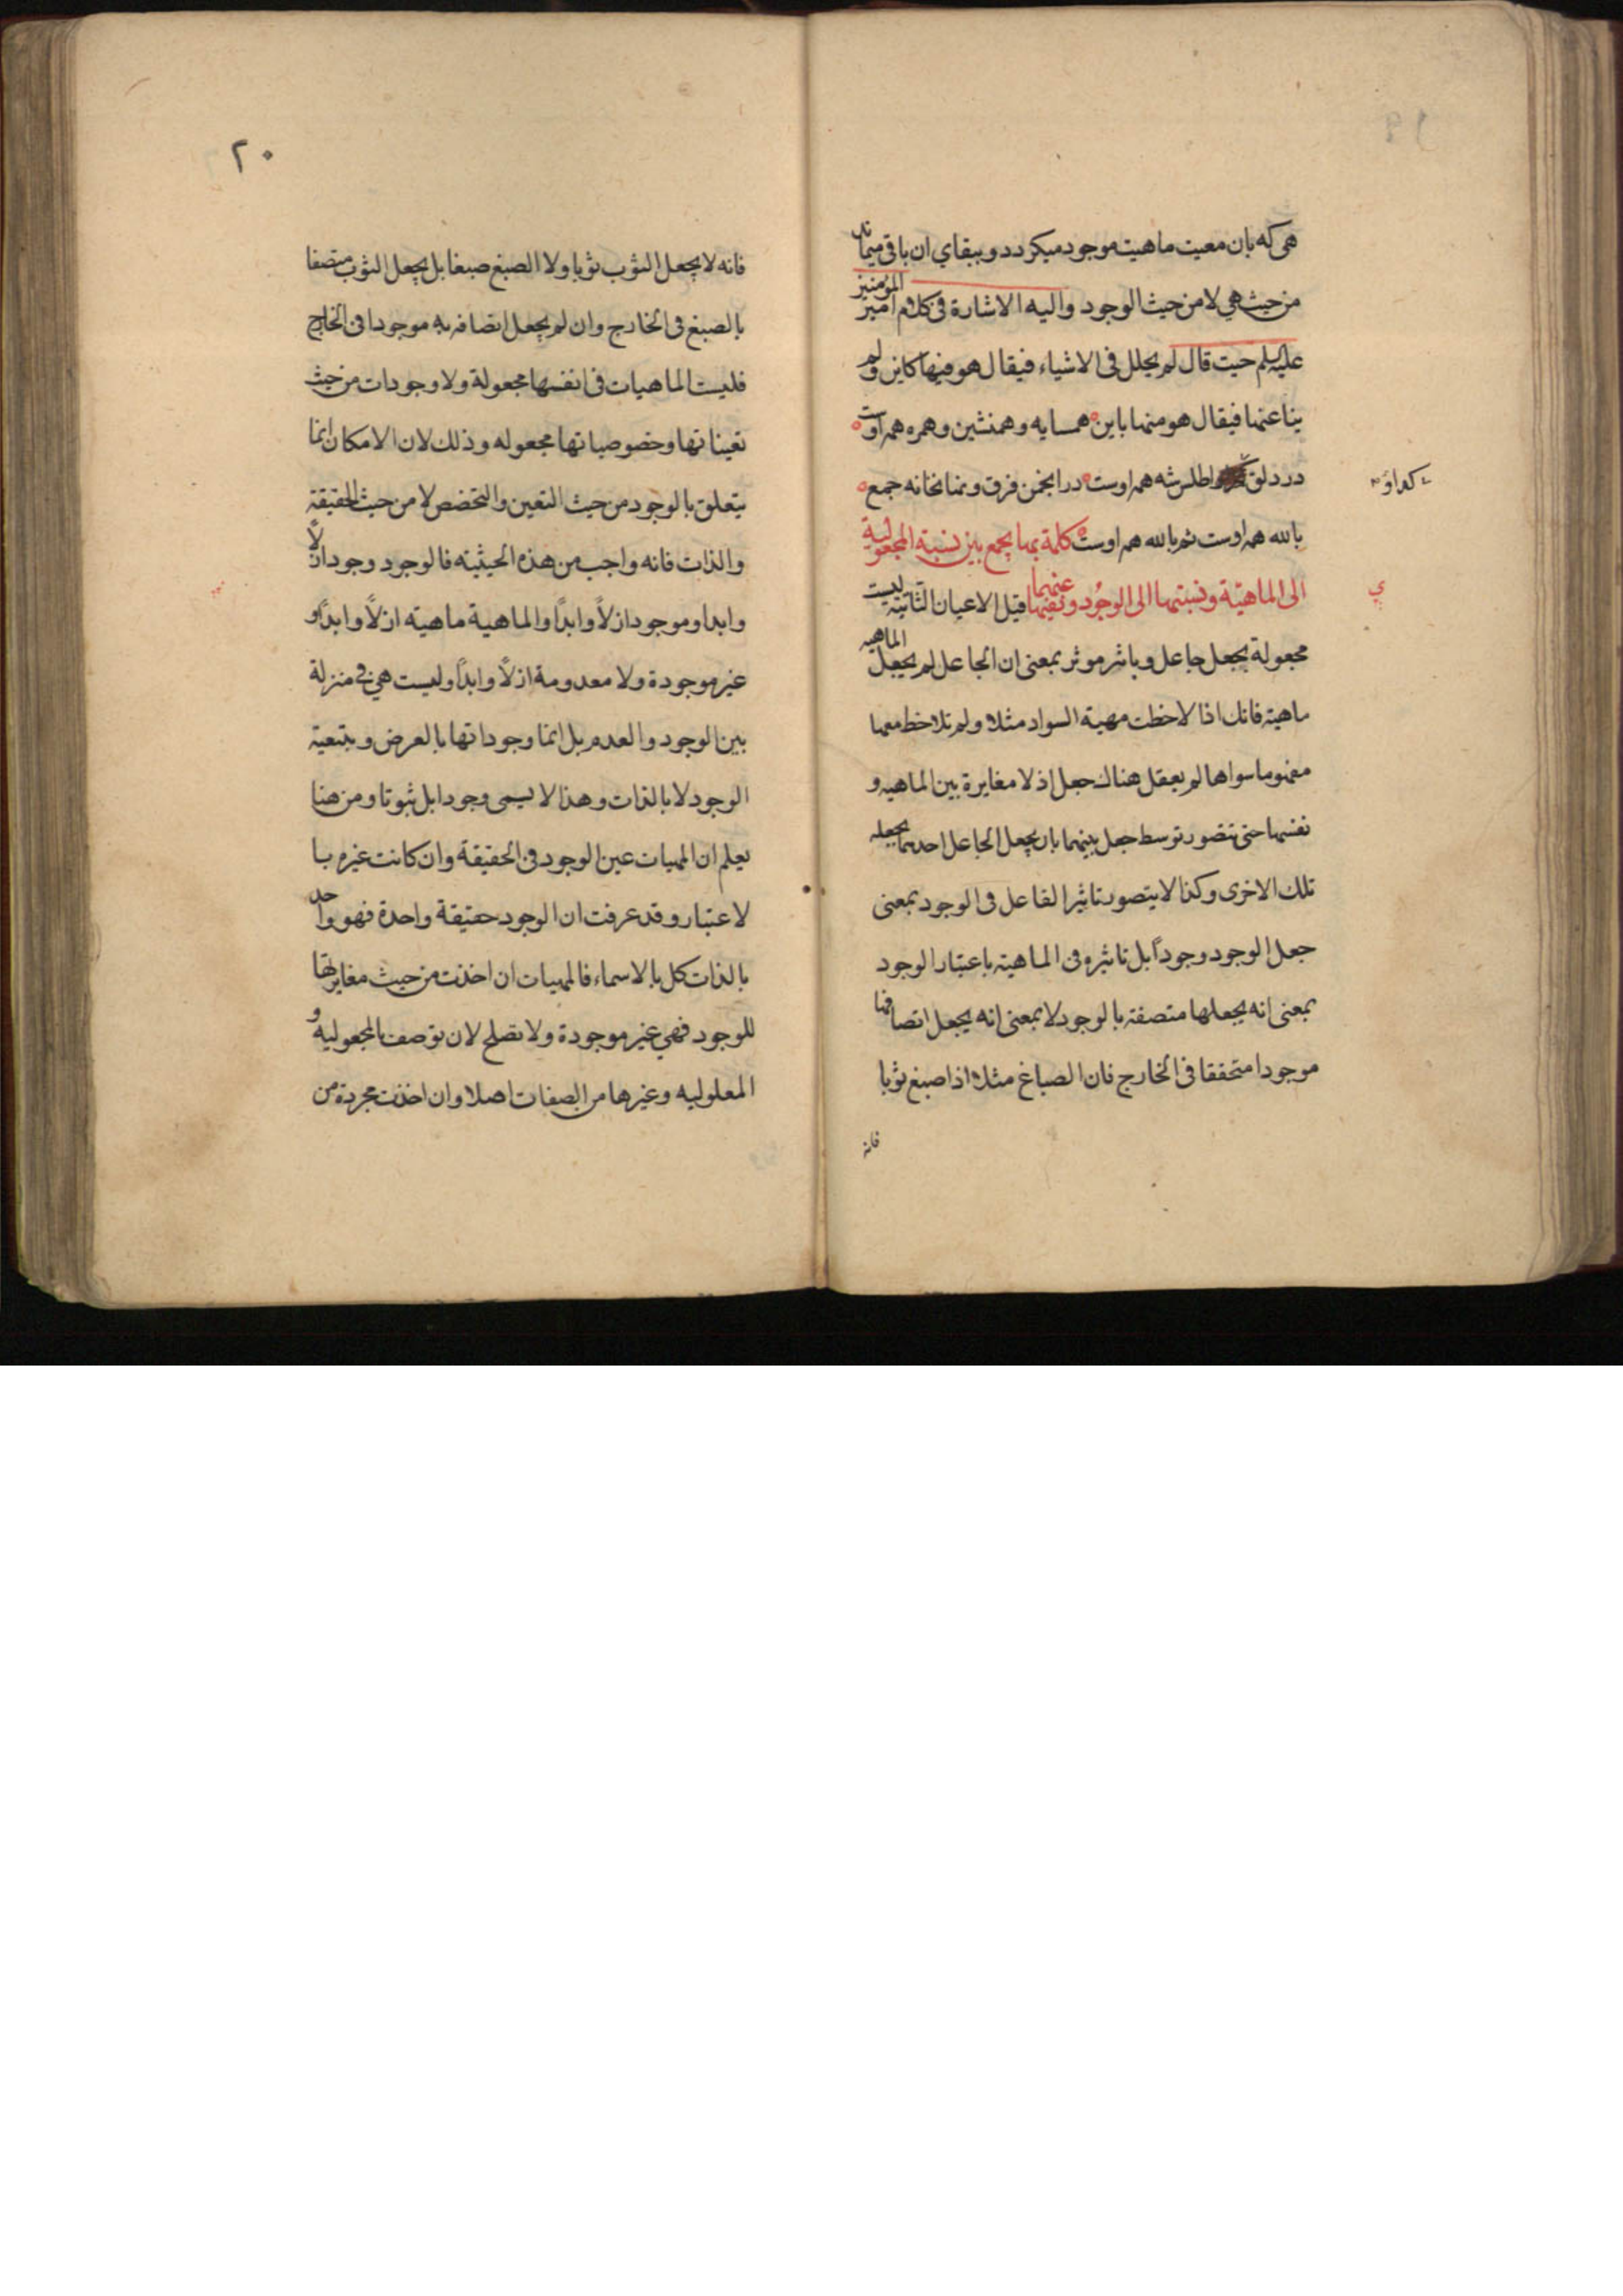 هی که بان معیت ماهیت موجود میکردد و ببقای ان باقی میماند
من حیث هی لا من حیث الوجود والیه الاشارة فی کلام امیر المؤمنین
علیه السلم حیث قال لم یحلل فی الاشیاء فیقال هو فیها کاین ولم
ینا عنها فیقال هو منها باین همسایه وهمنشین وهمره همه اوست
در دلق کدا واطلس شه همه اوست در انجمن فرق ونهانخانه جمع
کدا و
بالله همه اوست ثم بالله همه اوست کلمة بها یجمع بین نسبة المجعولیة
الی الماهیّة ونسبتها الی الوجُود ونفیها عنهما قیل الاعیان الثابتة لیست
ی
مجعولة بجعل جاعل وتاثیر موثر بمعنی ان الجاعل لم یجعل الماهیه
ماهیة فانك اذا لاحظت مهیة السواد مثلا ولم تلاحظ معها
مفهوما سواها لم یعقل هناك جعل اذ لا مغایرة بین الماهیه و
نفسها حتی تتصور توسط جعل بینهما بان یجعل الجاعل احدیهما بجعله
تلك الاخری وکذا لا یتصور تاثیر الفاعل فی الوجود بمعنی
جعل الوجود وجوداً بل تاثیره فی الماهیة باعتبار الوجود
بمعنی انه یجعلها متصفة بالوجود لا بمعنی انه یجعل اتصافها
موجودا متحققا فی الخارج فان الصباغ مثلا اذا صبغ ثوبا
فانه
٢٠
فانه لا یجعل الثوب ثوبا ولا الصبغ صبغا بل یجعل الثوب متصفا
بالصبغ فی الخارج وان لم یجعل اتصافه به موجودا فی الخارج
فلیست الماهیات فی انفسها مجعولة ولا وجودات من حیث
تعیناتها وخصوصیاتها مجعوله وذلك لان الامکان انما
یتعلق بالوجود من حیث التعین والتخصص لا من حیث الحقیقة
والذات فانه واجب من هذه الحیثیته فالوجود وجود ازلاً
وابدا وموجود ازلاً وابداً والماهیة ماهیة ازلاً وابداً و
غیر موجودة ولا معدومة ازلاً وابداً ولیست هی فی منزلة
بین الوجود والعدم بل انما وجوداتها بالعرض وبتبعیة
الوجود لا بالذات وهذا لا یسمی وجودا بل ثبوتا ومن هنا
یعلم ان المهیات عین الوجود فی الحقیقة وان کانت غیره با
لاعتبار وقد عرفت ان الوجود حقیقة واحدة فهو واحد
بالذات کل بالاسماء فالمهیات ان اخذت من حیث مغایرتها
للوجود فهی غیر موجودة ولا تصلح لان توصف بالمجعولیه و
المعلولیه وغیرها من الصفات اصلا وان اخذت مجردة من